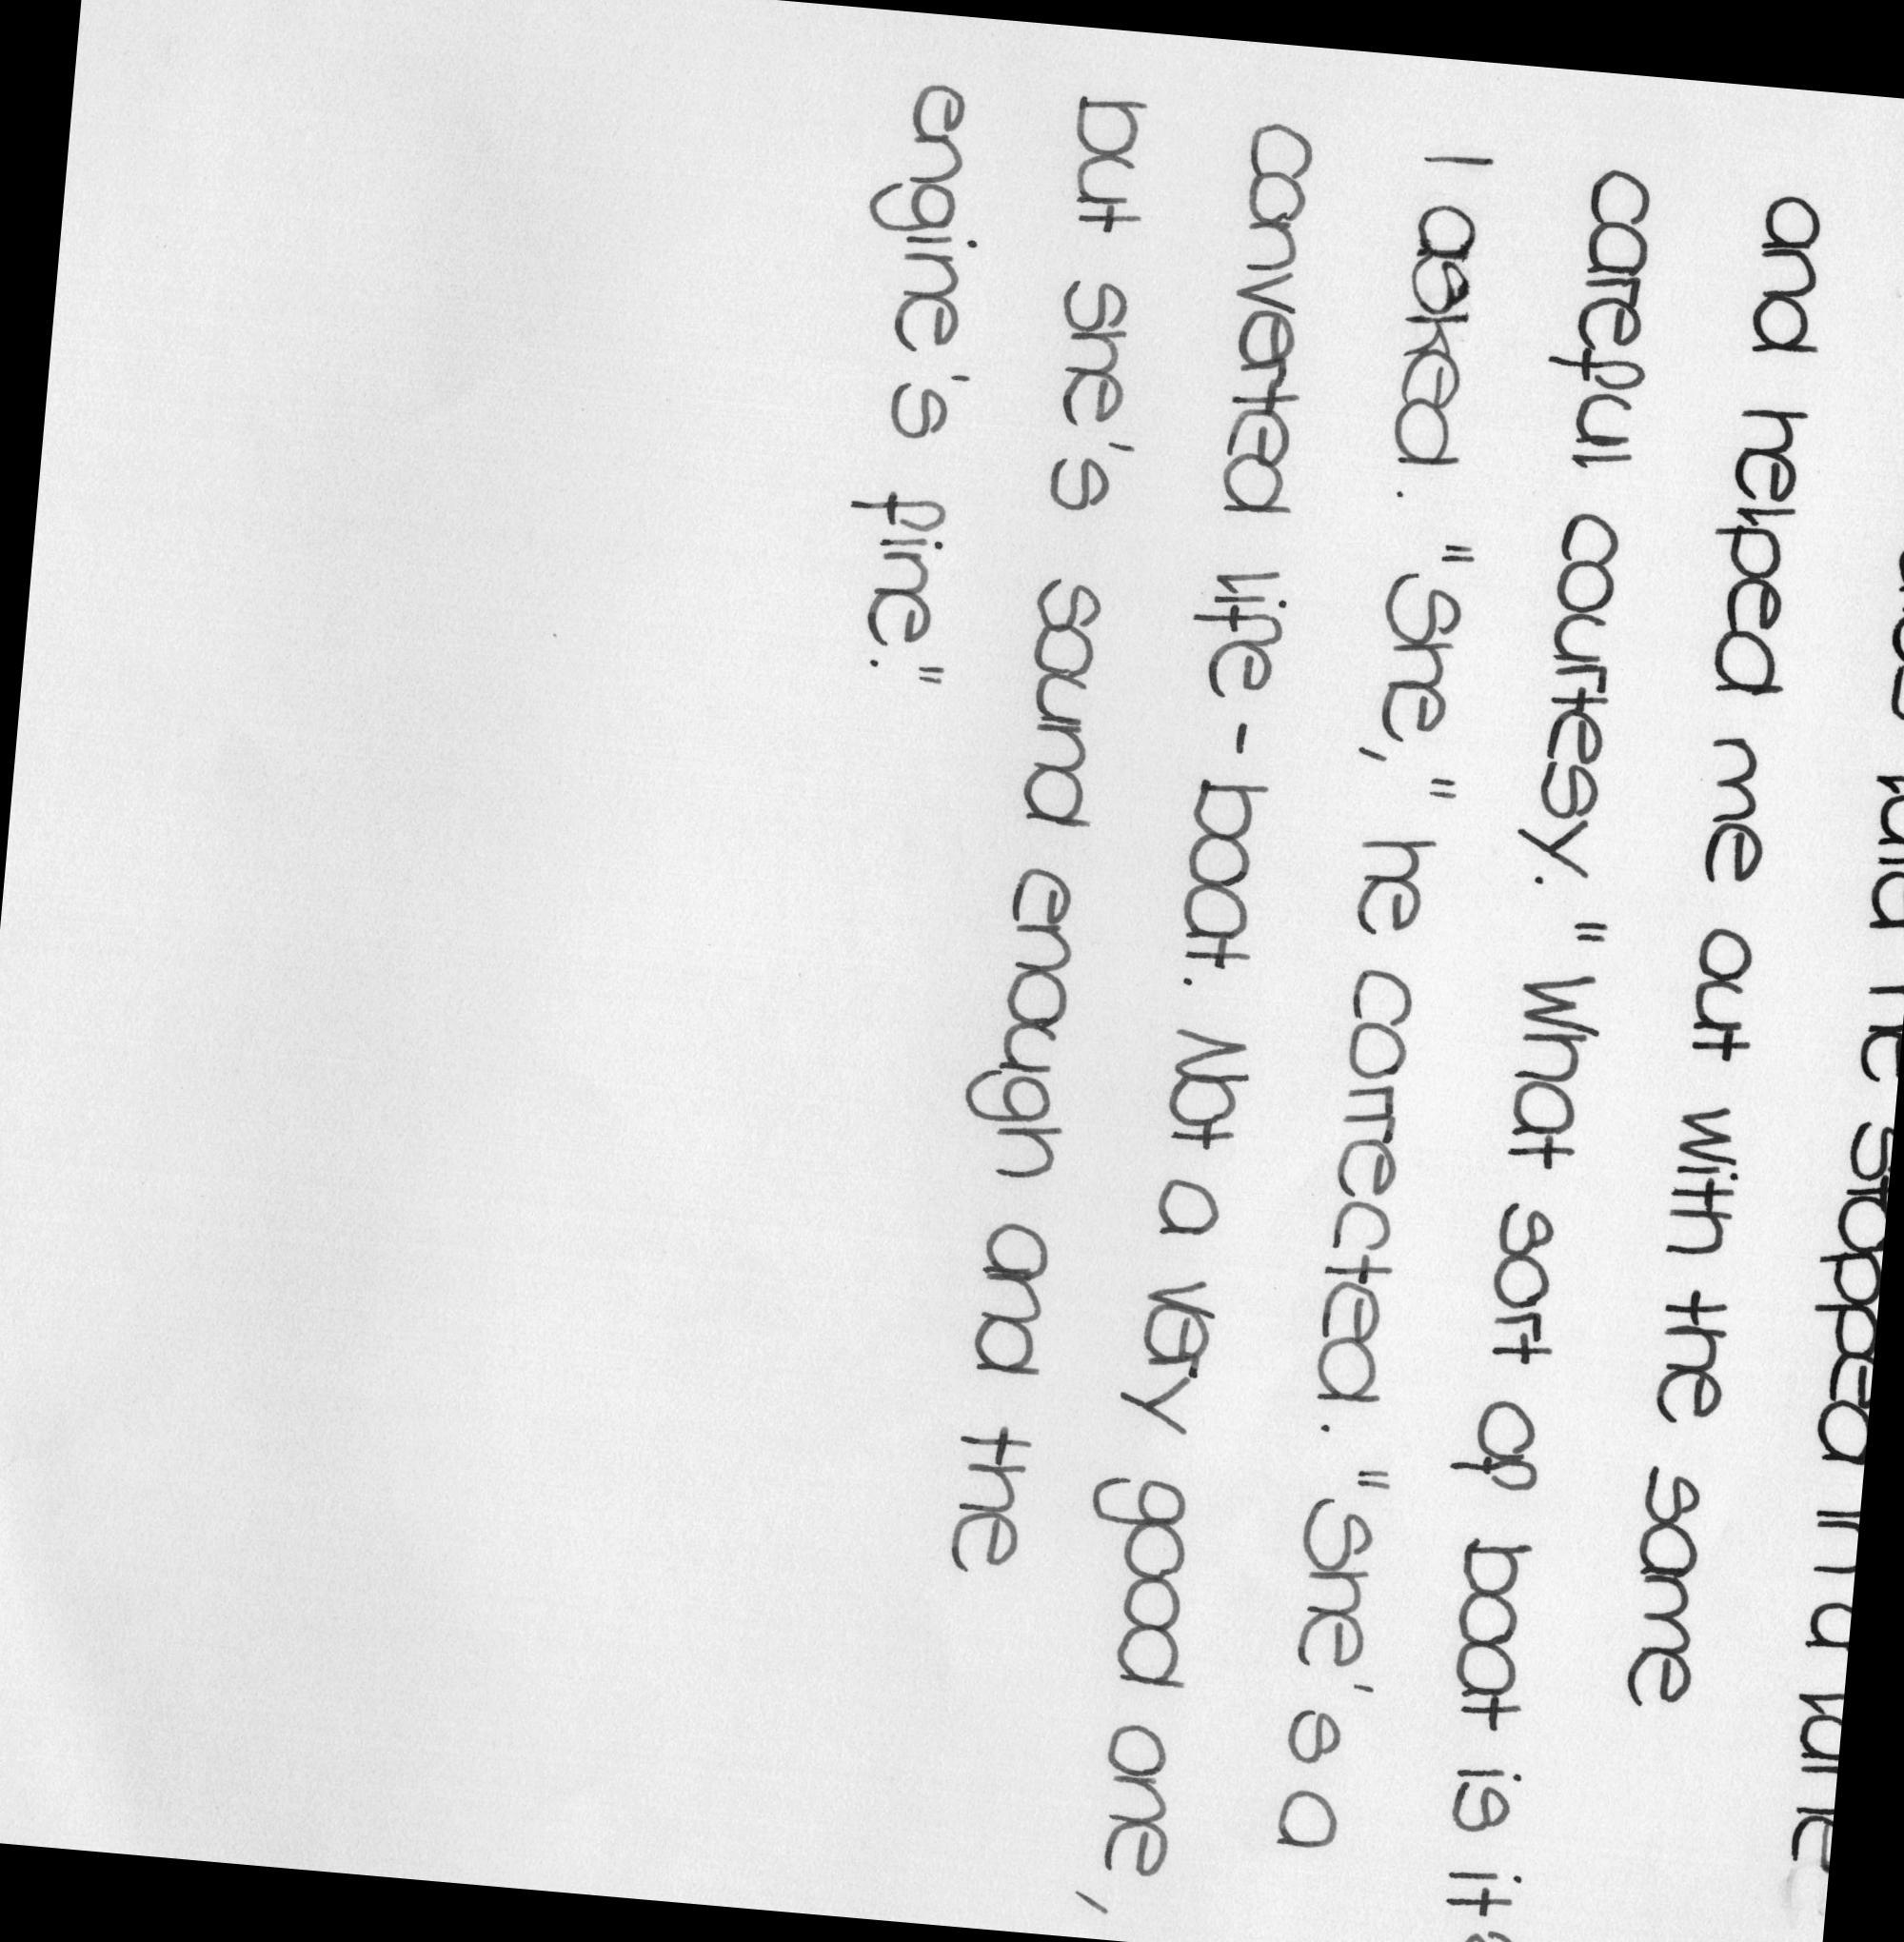 he stopped in a lane
and helped me out with the same
careful courtesy. "What sort of boat is it
I asked. "She," he corrected. "She's a
converted life-boat. Not a very good one,
but she's sound enough and the
engine's fine."